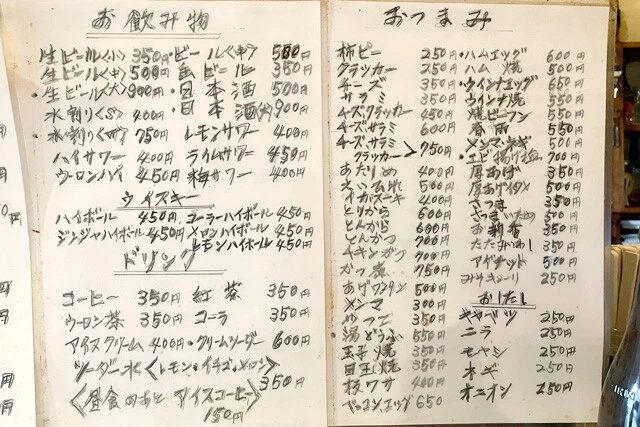 お飲み物
生ビール<小> 350円 ・ビール<中> 500円
生ビール<中> 500円 缶ビール 350円
・生ビール<大> 900円 ・日本酒 500円
水割り<S> 400円 ・日本酒<大> 900円
水割り<W> 750円 レモンサワー 400円
ハイサワー 400円 ライムサワー 450円
ウーロンハイ 450円 梅サワー 400円
ウイスキー
ハイボール 450円 コーラーハイボール 450円
ジンジャハイボール 450円 メロンハイボール 450円
レモンハイボール 450円
ドリンク
コーヒー 350円 紅茶 350円
ウーロン茶 350円 コーラ 350円
アイスクリーム 400円 ・クリームソーダー 600円
ソーダー水<レモン・イチゴ・メロン> 350円
<昼食のあと アイスコーヒー> 150円
おつまみ
柿ピー 250円
クラッカー 250円
チーズ 350円
サラミ 350円
チーズ、クラッカー 450円
チーズ、サラミ 600円
チーズ、サラミ クラッカー > 750円
あたりめ 400円
えいひれ 500円
イカバター 400円
とりから 600円
とんから 600円
とんかつ 700円
チキンカツ 700円
かつ煮 750円
あげワンタン 500円
メンマ 300円
やっこ 350円
湯どうふ 550円
玉子焼 350円
目玉焼 350円
板ワサ 400円
ベーコンエッグ 650
・ハムエッグ 600円
ハム焼 500円
・ウインナエッグ 650円
ウインナ焼 550円
焼ビーフン 550円
春雨 550円
・メンマネギ 500円
・エビ揚げ 700円
厚あげ 350円
厚あげイタメ 500円
さつま 350円
さつまいため 500円
お新香 350円
たたみいわし 350円
アイザット 500円
ミソキューリ 250円
おしたし
キャベツ 250円
ニラ 250円
モヤシ 250円
ネギ 250円
オニオン 250円